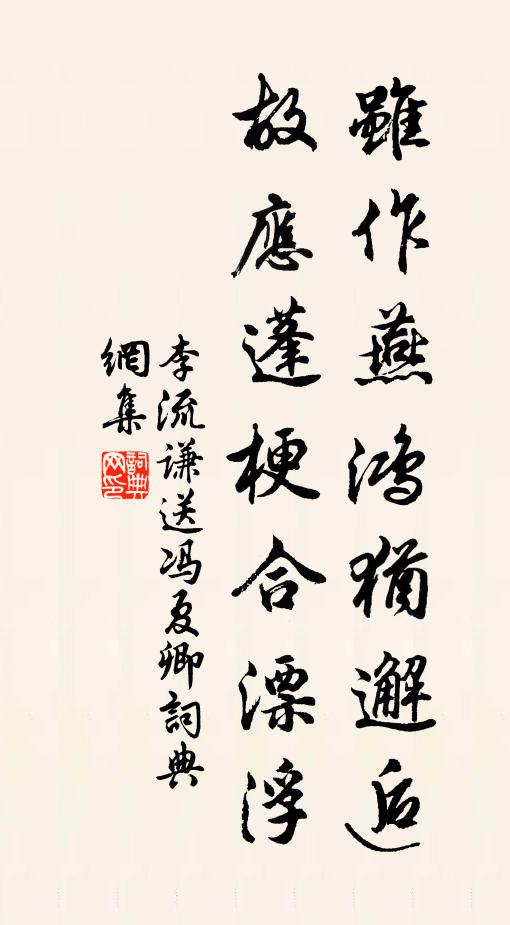 雖作燕鴻猶邂逅
故應蓬梗合漂浮
李流谦送冯夐卿詞典
網集
詞典網印